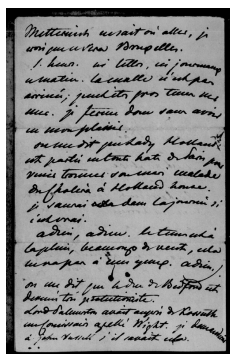 Metternich ne sait où aller, je
crois que ce sera Bruxelles.
1. heure. ni lettre, ni journaux
ce matin. la malle n'est pas
arrivée;
mes. je ferme donc sans avoir
eu mon plaisir.
on me dit que Lady Holland
est partie en toute hâte de Paris pour
venir trouver son mari malade
du choléra à Holland house.
je saurai cela dans la journée si
c'est vrai.
adieu, adieu. le temps est à
la pluie, beaucoup de vent, cela
ne va pas à mes yeux. adieu
on me dit que le Duc de Bedford est
devenu protectionniste.
Lord Palmerston
à John Russell s'il avait cela.